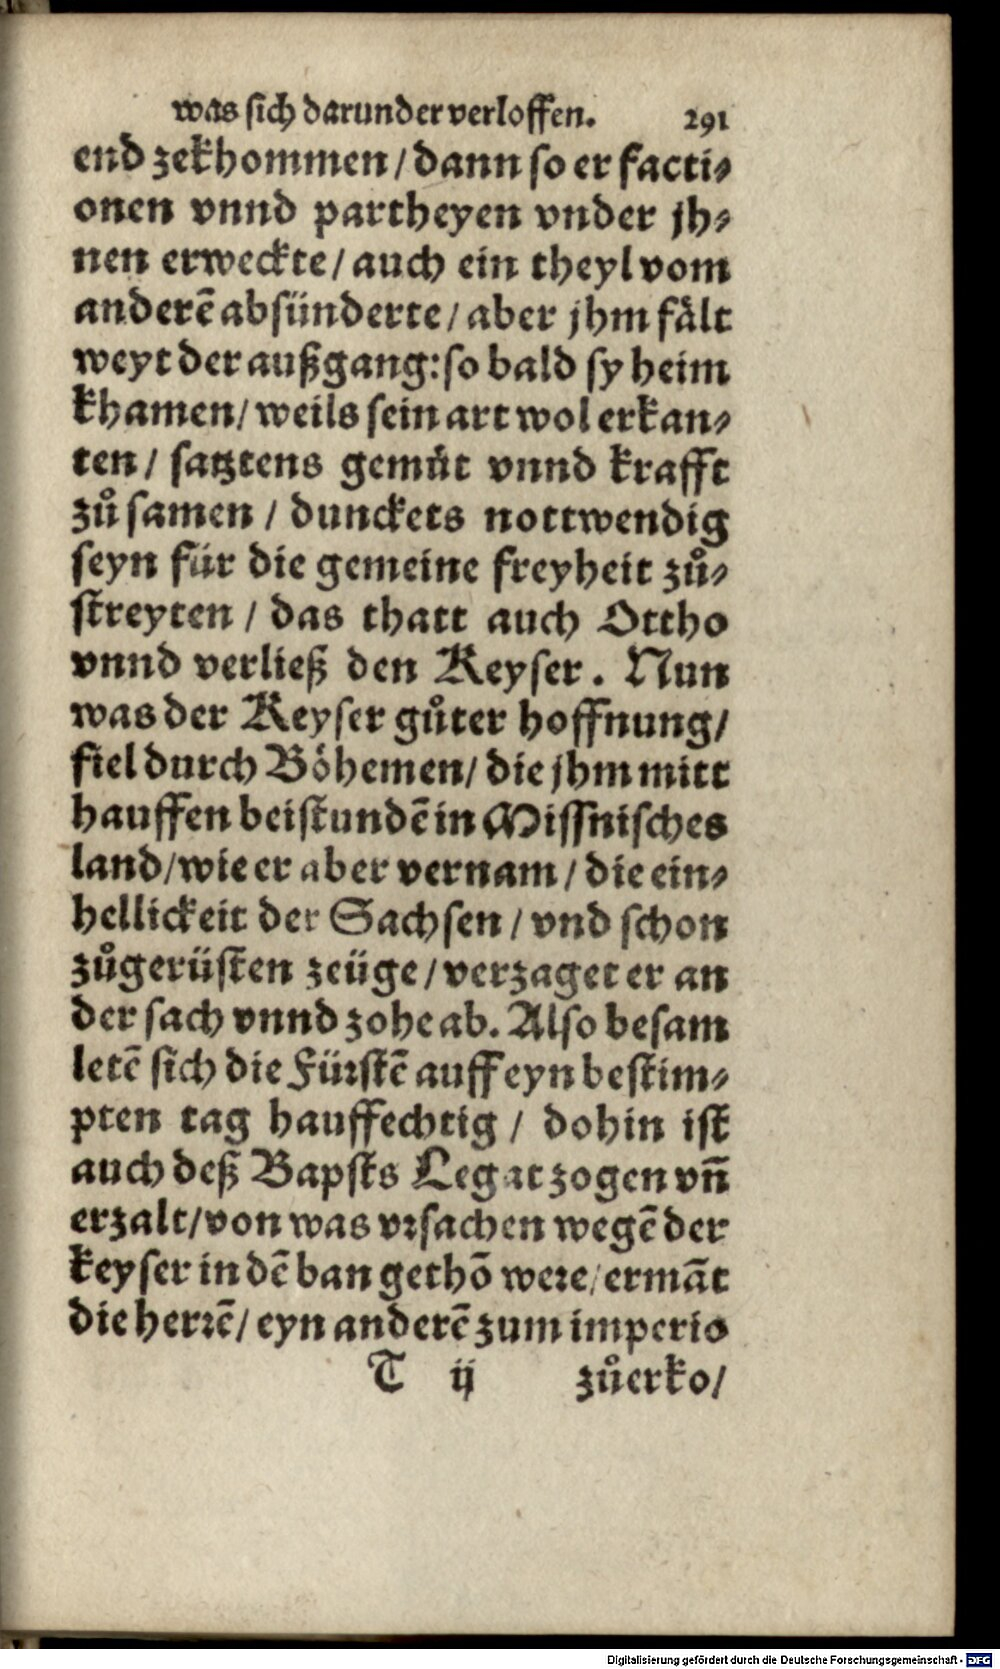 was sich darunder verloffen. 291
end zekhommen / dann so er facti⸗
onen vnnd partheyen vnder jh⸗
nen erweckte / auch ein theyl vom
anderē absünderte / aber jhm fålt
weyt der außgang: so bald sy heim
khamen / weils sein art wol erkan⸗
ten / satztens gemůt vnnd krafft
zůsamen / dunckets nottwendig
seyn für die gemeine freyheit zů⸗
streyten / das thatt auch Ottho
vnnd verließ den Keyser. Nun
was der Keyser gůter hoffnung /
fiel durch Bőhemen / die jhm mitt
hauffen beistundē in Missnisches
land / wie er aber vernam / die ein⸗
hellickeit der Sachsen / vnd schon
zůgerüsten zeüge / verzaget er an
der sach vnnd zohe ab. Also besam
letē sich die Fürstē auff eyn bestim⸗
pten tag hauffechtig / dohin ist
auch deß Bapsts Legat zogen vñ
erzalt / von was vrsachen wegē der
keyser in dē ban gethō were / ermāt
die herrē / eyn anderē zum imperio
T ij zůerko /
Digitalisierung gefördert durch die Deutsche Forschungsgemeinschaft - DFG